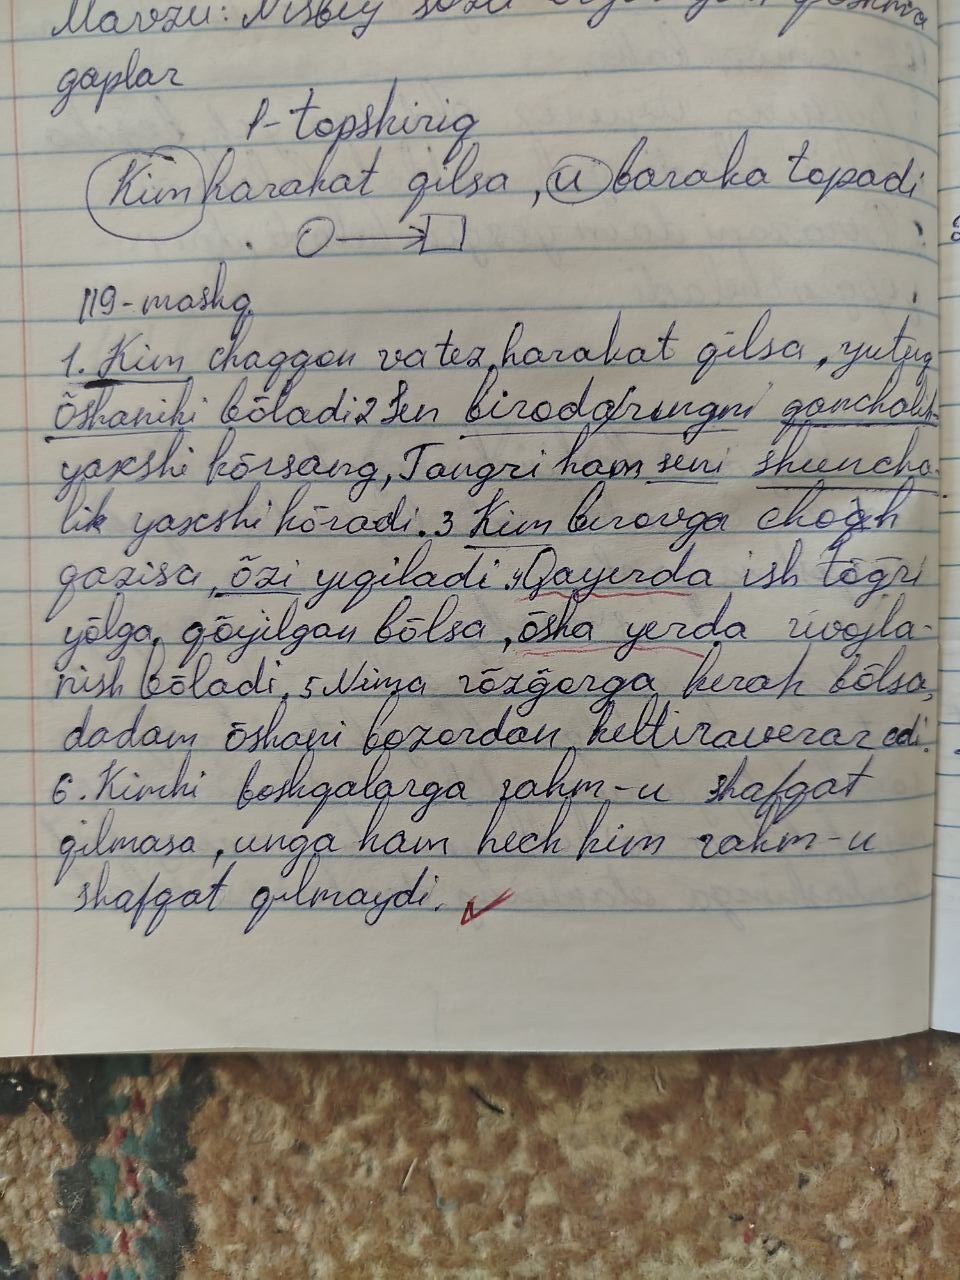 Mavzu: Nisbiy sözli ergash gapli qoshma
gaplar
1-topshiriq
Kim harakat qilsa, u baraka topadi
119-mashq.
1. Kim chaqqon va tez harakat qilsa, yutuq
õshaniki bõladi 2 Sen birodaringni qanchalik
yaxshi kõrsang, Tangri ham seni shuncha-
lik yaxshi kõradi. 3 Kim birovga chogh
qazisa, õzi yiqiladi. 4 Qayerda ish tõg̃ri
yõlga qõyilgan bõlsa, õsha yerda rivojla-
nish bõladi. 5 Nima rõzg̃orga kerak bõlsa,
dadam õshani bozordan keltiraverar edi.
6. Kimki boshqalarga rahm-u shafqat
qilmasa, unga ham hech kim rahm-u
shafqat qilmaydi.